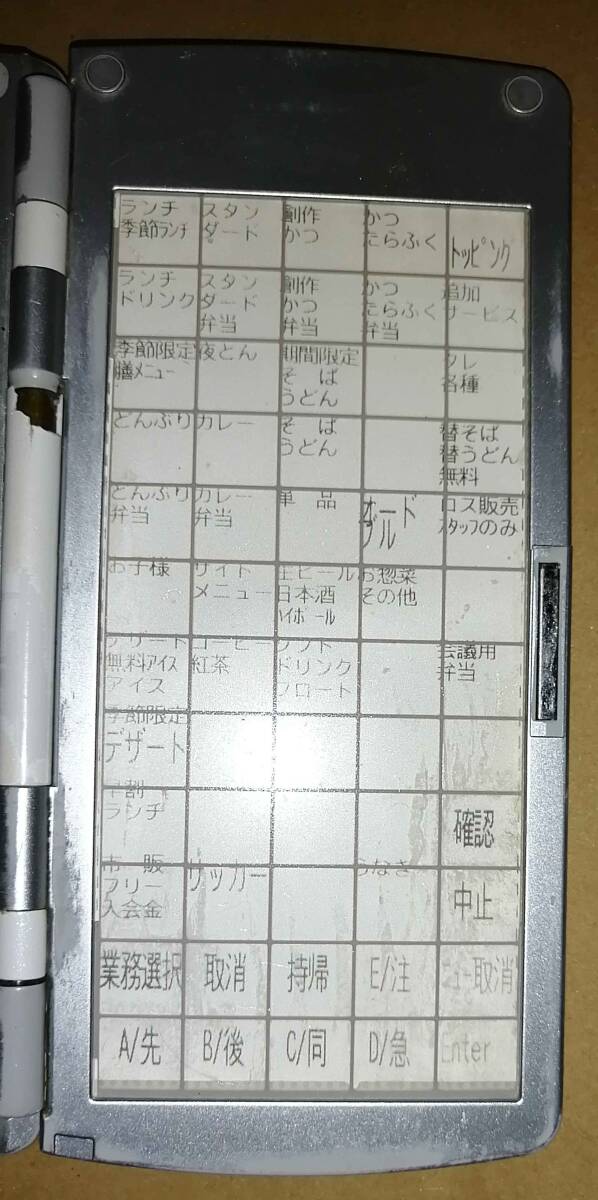 ランチ
季節ランチ
スタン
ダード
創作
かつ
かつ
たらふく
トッピング
ランチ
ドリンク
スタン
ダード
弁当
創作
かつ
弁当
かつ
たらふく
弁当
追加
サービス
季節限定
膳メニュー
夜とん
期間限定
そば
うどん
タレ
各種
どんぶり
カレー
そば
うどん
替そば
替うどん
無料
どんぶり
弁当
カレー
弁当
単品
オード
ブル
ロス販売
スタッフのみ
お子様
サイド
メニュー
生ビール
日本酒
ハイボール
お惣菜
その他
デザート
無料アイス
アイス
コーヒー
紅茶
ソフト
ドリンク
フロート
会議用
弁当
季節限定
デザート
早割
ランチ
確認
市販
フリー
入会金
サッカー
うなぎ
中止
業務選択
取消
持帰
E/注
ニュー取消
A/先
B/後
C/同
D/急
Enter